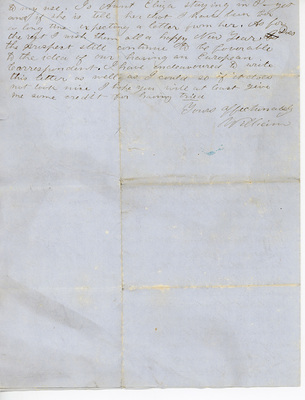 to any use. Is Aunt Eliza staying in
and if she is tell her that I have been
a long time expecting a letter from her. As for
the rest I wish them all a happy New Year. Does
the prospect still continue to be favorable
to the idea of our having an European
Correspondent. I have endeavoured to write
this letter as well as I could so if it does
not look nice I hope you will at least give
me some credit for having tried
Yours affectionately
William